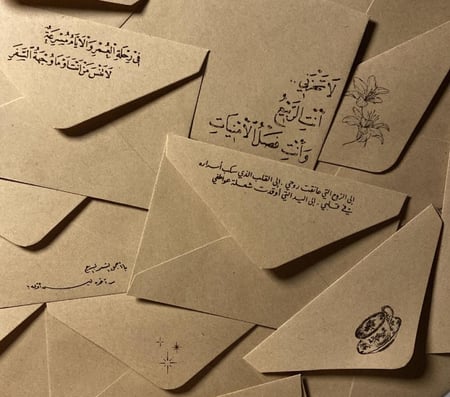 في رحلة العمر والأيام مسرعة
لا تنس من أنت أو ما وجهة السفر
لا تحزني..
أنتِ الربيع
وأنتِ فصل الأمنيات
إلى الروح التي عانقت روحي . إلى القلب الذي سكب أسراره
في قلبي . إلى اليد التي أوقدت شعلة عواطفي